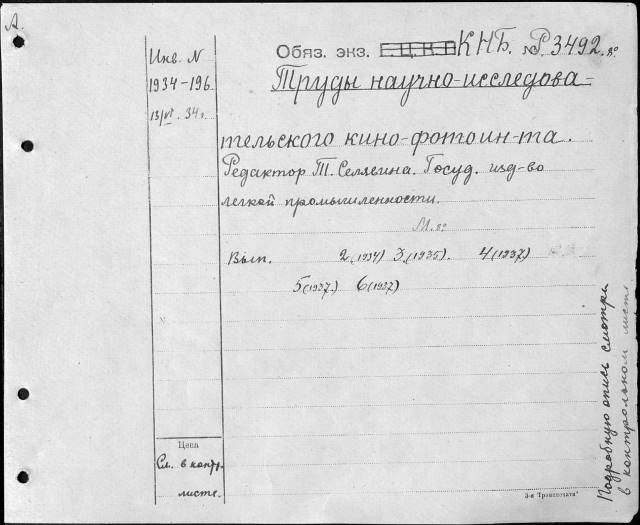 А.
Инв. N
1934-196.
13/VI. 34г.
Обяз. экз. Г.Ц.К.П КНБ. № Р.3492.
Труды научно-исследова-
тельского кино-фотоин-та.
Редактор Т. Селягина. Госуд. изд-во
легкой промышленности.
М. 8°
Вып. 2(1934) 3(1935). 4(1937)
5(1937.) 6(1937)
Цена
См. в контр.
листе.
3-я "Транспечати"
Подробную опись смотри
в контрольном листе